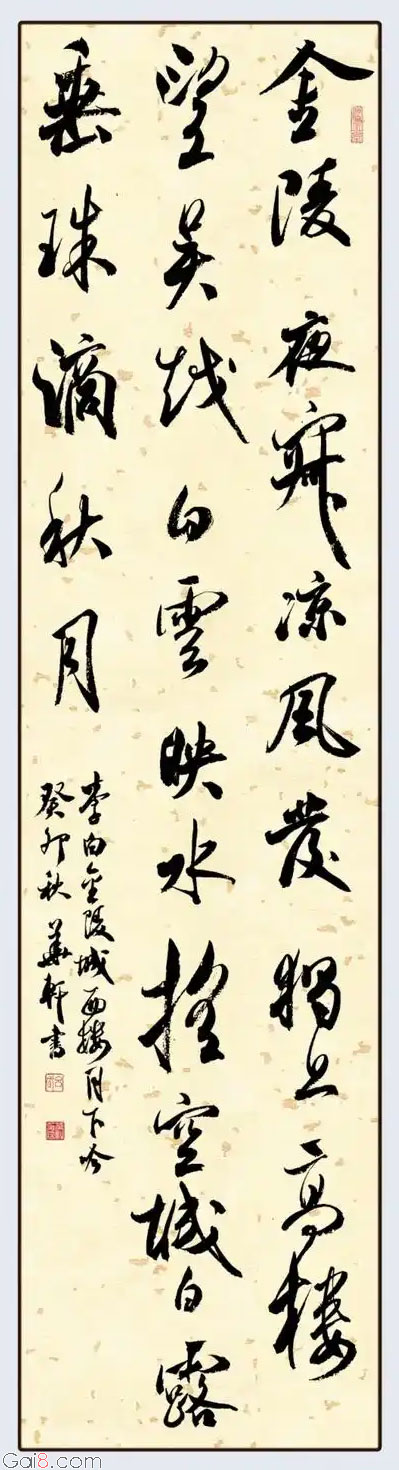 金陵夜寂凉風發獨上高樓
望吴越白雲映水摇空城白露
垂珠滴秋月
李白金陵城西樓月下吟
癸卯秋華軒書
Gai8.com